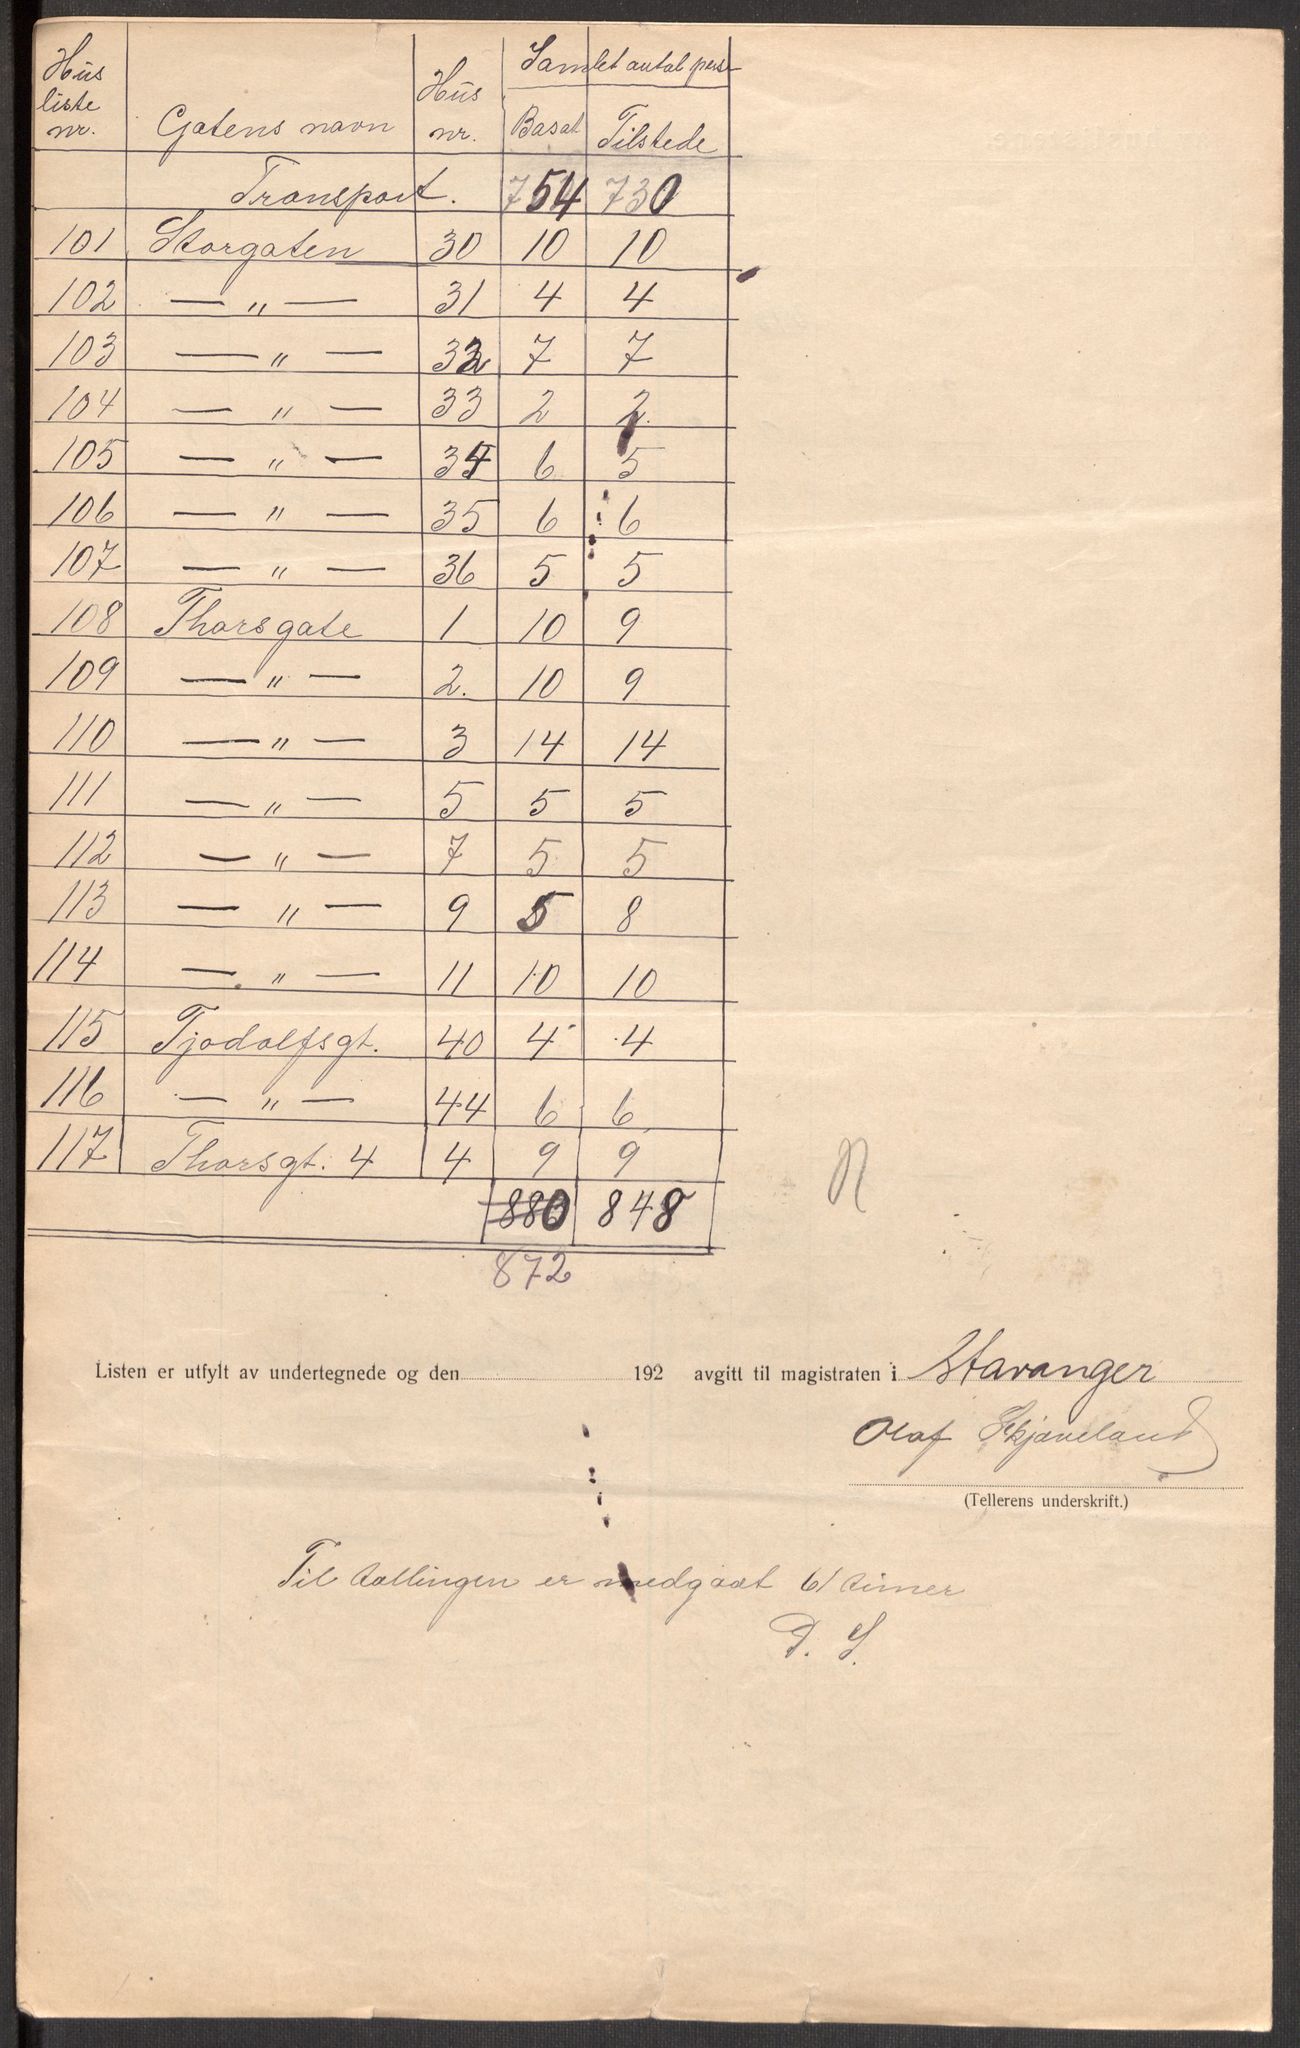 Hus liste nr. Gatens navn Hus nr. Samlet antal pers
Bosat Tilstede
Transport. 754 730
101 Storgaten 30 10 10
102 — „ — 31 4 4
103 — „ — 32 7 7
104 — „ — 33 2 2
105 — „ — 34 6 5
106 — „ — 35 6 6
107 — „ — 36 5 5
108 Thorsgate 1 10 9
109 — „ — 2. 10 9
110 — „ — 3 14 14
111 — „ — 5 5 5
112 — „ — 7 5 5
113 — „ — 9 8
114 — „ — 11 10 10
115 Tjodolfsgt. 40 4 4
116 — „ — 44 6 6
117 Thorsgt. 4 4 9 9
880 848
872
Listen er utfylt av undertegnede og den 192 avgitt til magistraten i Stavanger
Olaf Skjæveland
(Tellerens underskrift.)
Til tællingen er medgaat 61 timer